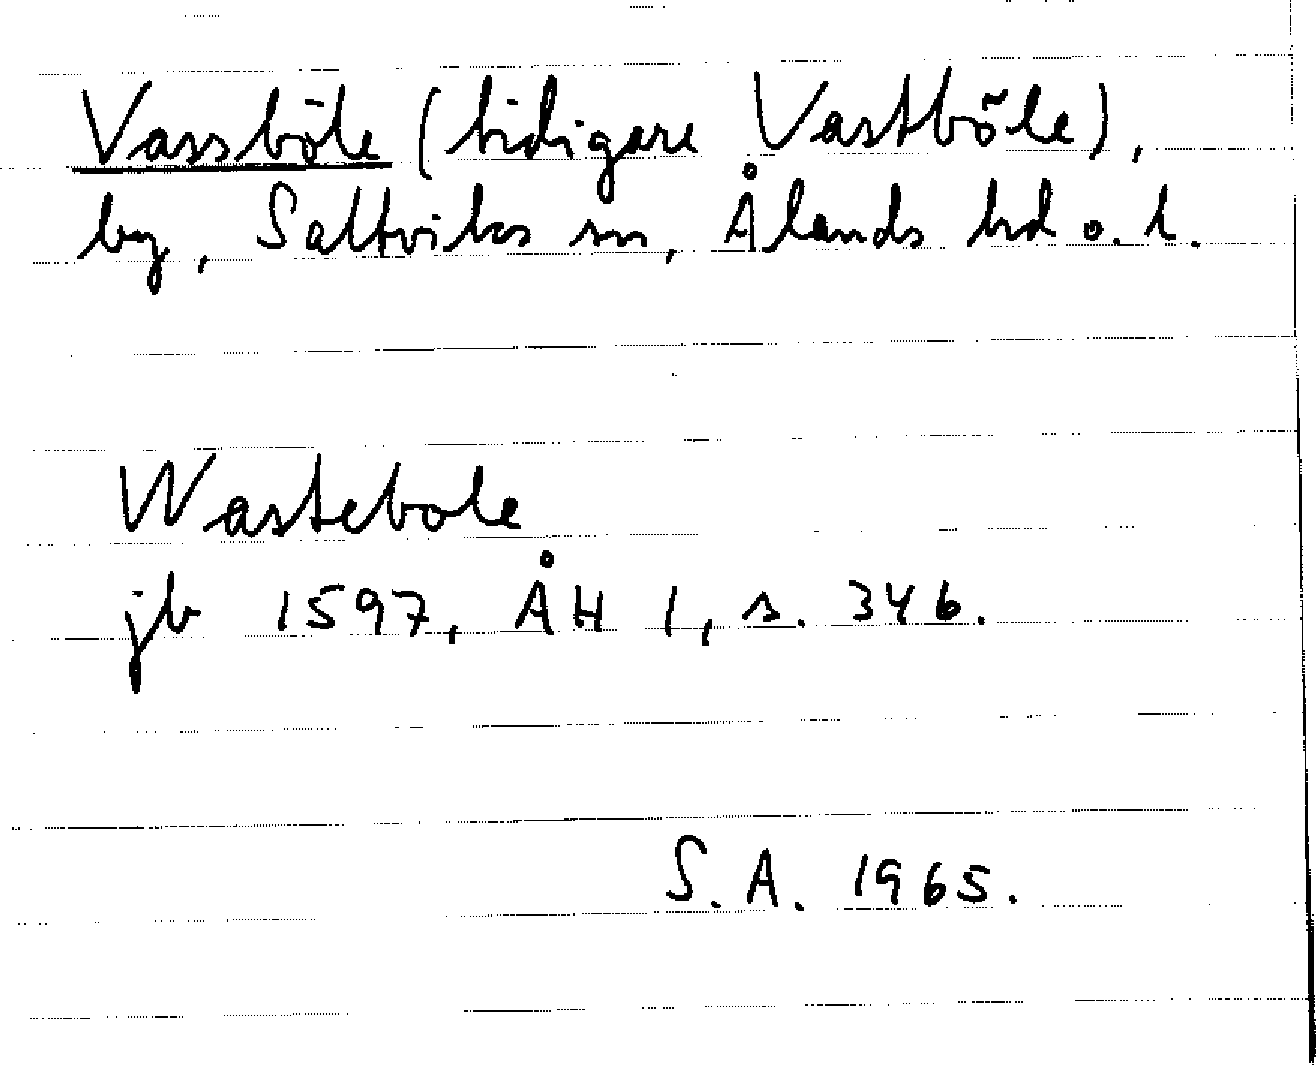 Vassböle (tidigare Vastböle),
by, Saltviks sn, Ålands hd o. l.
Wastebole
jb 1597, ÅH 1, s. 346.
S. A. 1965.